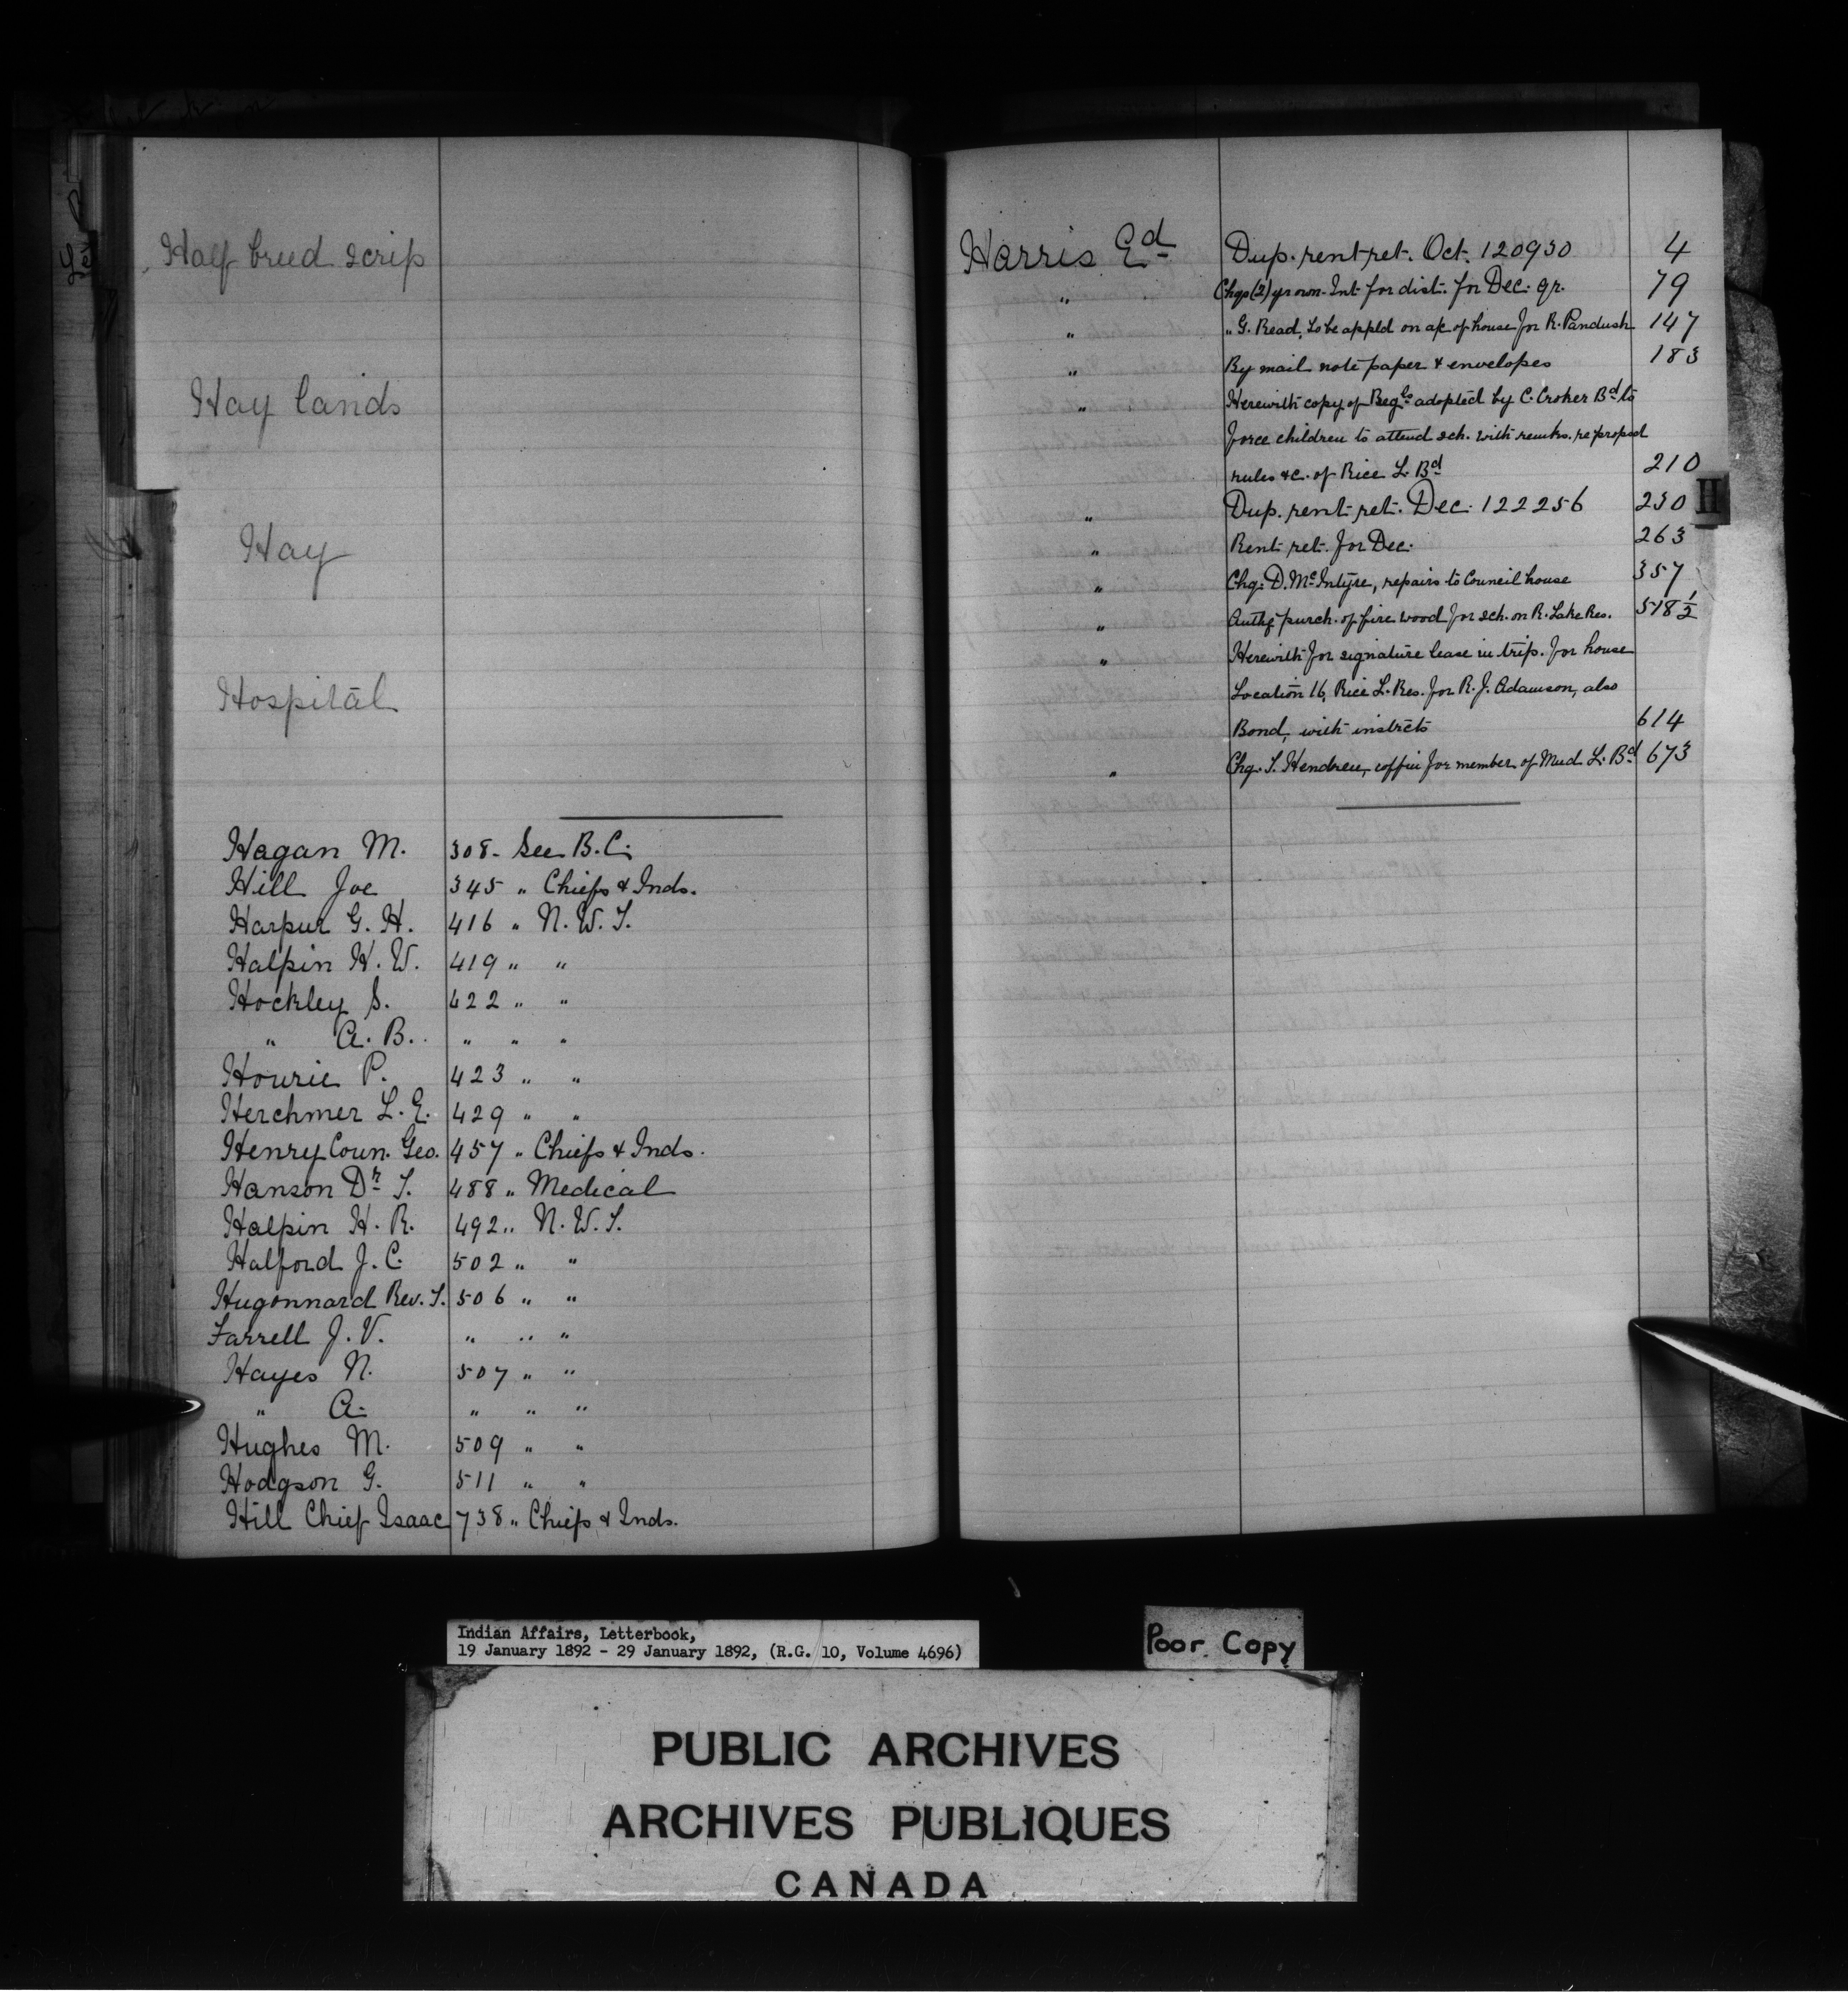 Half breed scrip
Hay lands
Hay
Hospital
Hagan M. 308 - See B.C.
Hill Joe 345 " Chiefs & Inds.
Harpur G. H. 416 " N. W. T.
Halpin H. W. 419 " "
Hockley S. 422 " "
" A. B. " " "
Hourie P. 423 " "
Herchmer L. E. 429 " "
Henry Coun. Geo. 457 " Chiefs & Inds.
Hanson Dr. T. 488 " Medical
Halpin H. R. 492 " N. W. T.
Halford J. C. 502 " "
Hugonnard Rev. J. 506 " "
Farrell J. V. " " "
Hayes N. 507 " "
" A. " " "
Hughes M. 509 " "
Hodgson G. 511 " "
Hill Chief Isaac 738 " Chiefs & Inds.
Harris Ed Dup. rent ret. Oct. 120930 4
" Chqs (2) own Int for dist. for Dec. qr. 79
" " G. Read, to be appld on a/c of house for R. Pandush 147
" By mail note paper & envelopes 183
" Herewith copy of Regls adopted by C. Croker Bd to
force children to attend sch. with remks. re proposd
rules &c. of Rice L. Bd 210
" Dup. rent ret. Dec. 122256 230
" Rent ret. for Dec. 263
" Chq. D. McIntyre, repairs to Council house 357
" Authg purch. of fire wood for sch. on R. Lake Res. 518 1/2
" Herewith for signature lease in trip. for house
Location 16, Rice L. Res. for R. J. Adamson, also
Bond, with instrcts 614
" Chq. T. Hendren, coffin for member of Mud L. Bd 673
H
Indian Affairs, Letterbook,
19 January 1892 - 29 January 1892, (R.G. 10, Volume 4696)
Poor Copy
PUBLIC ARCHIVES
ARCHIVES PUBLIQUES
CANADA